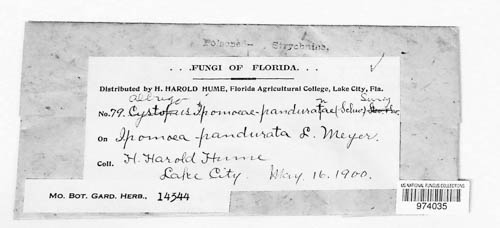 Poisoned - Strychnine.
. . .FUNGI OF FLORIDA. . .
Distributed by H. HAROLD HUME, Florida Agricultural College, Lake City, Fla.
Albugo Swing
No. 79. Cystopus Ipomoeae-panduratae (Schw.)
On Ipomoea pandurata L. Meyer.
Coll. H. Harold Hume
Lake City. May. 16. 1900.
MO. BOT. GARD. HERB., 14544
US NATIONAL FUNGUS COLLECTIONS
974035